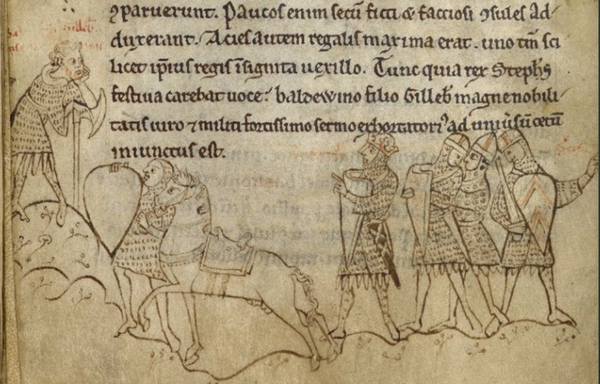 ꝯparuerunt. Paucos enim secū ficti & factiosi ꝯsules ad-
duxerant. Acies autem regalis maxima erat. uno tm̄ sci
licet ip̄ius regis īsignita uexillo. Tunc quia rex Stephs
festiua carebat uoce: baldewino filio Gilleb̄ magne nobili-
tatis uiro ⁊ militi fortissimo sermo exhortatoriꝰ ad uniūsū cetū
iniunctus est.